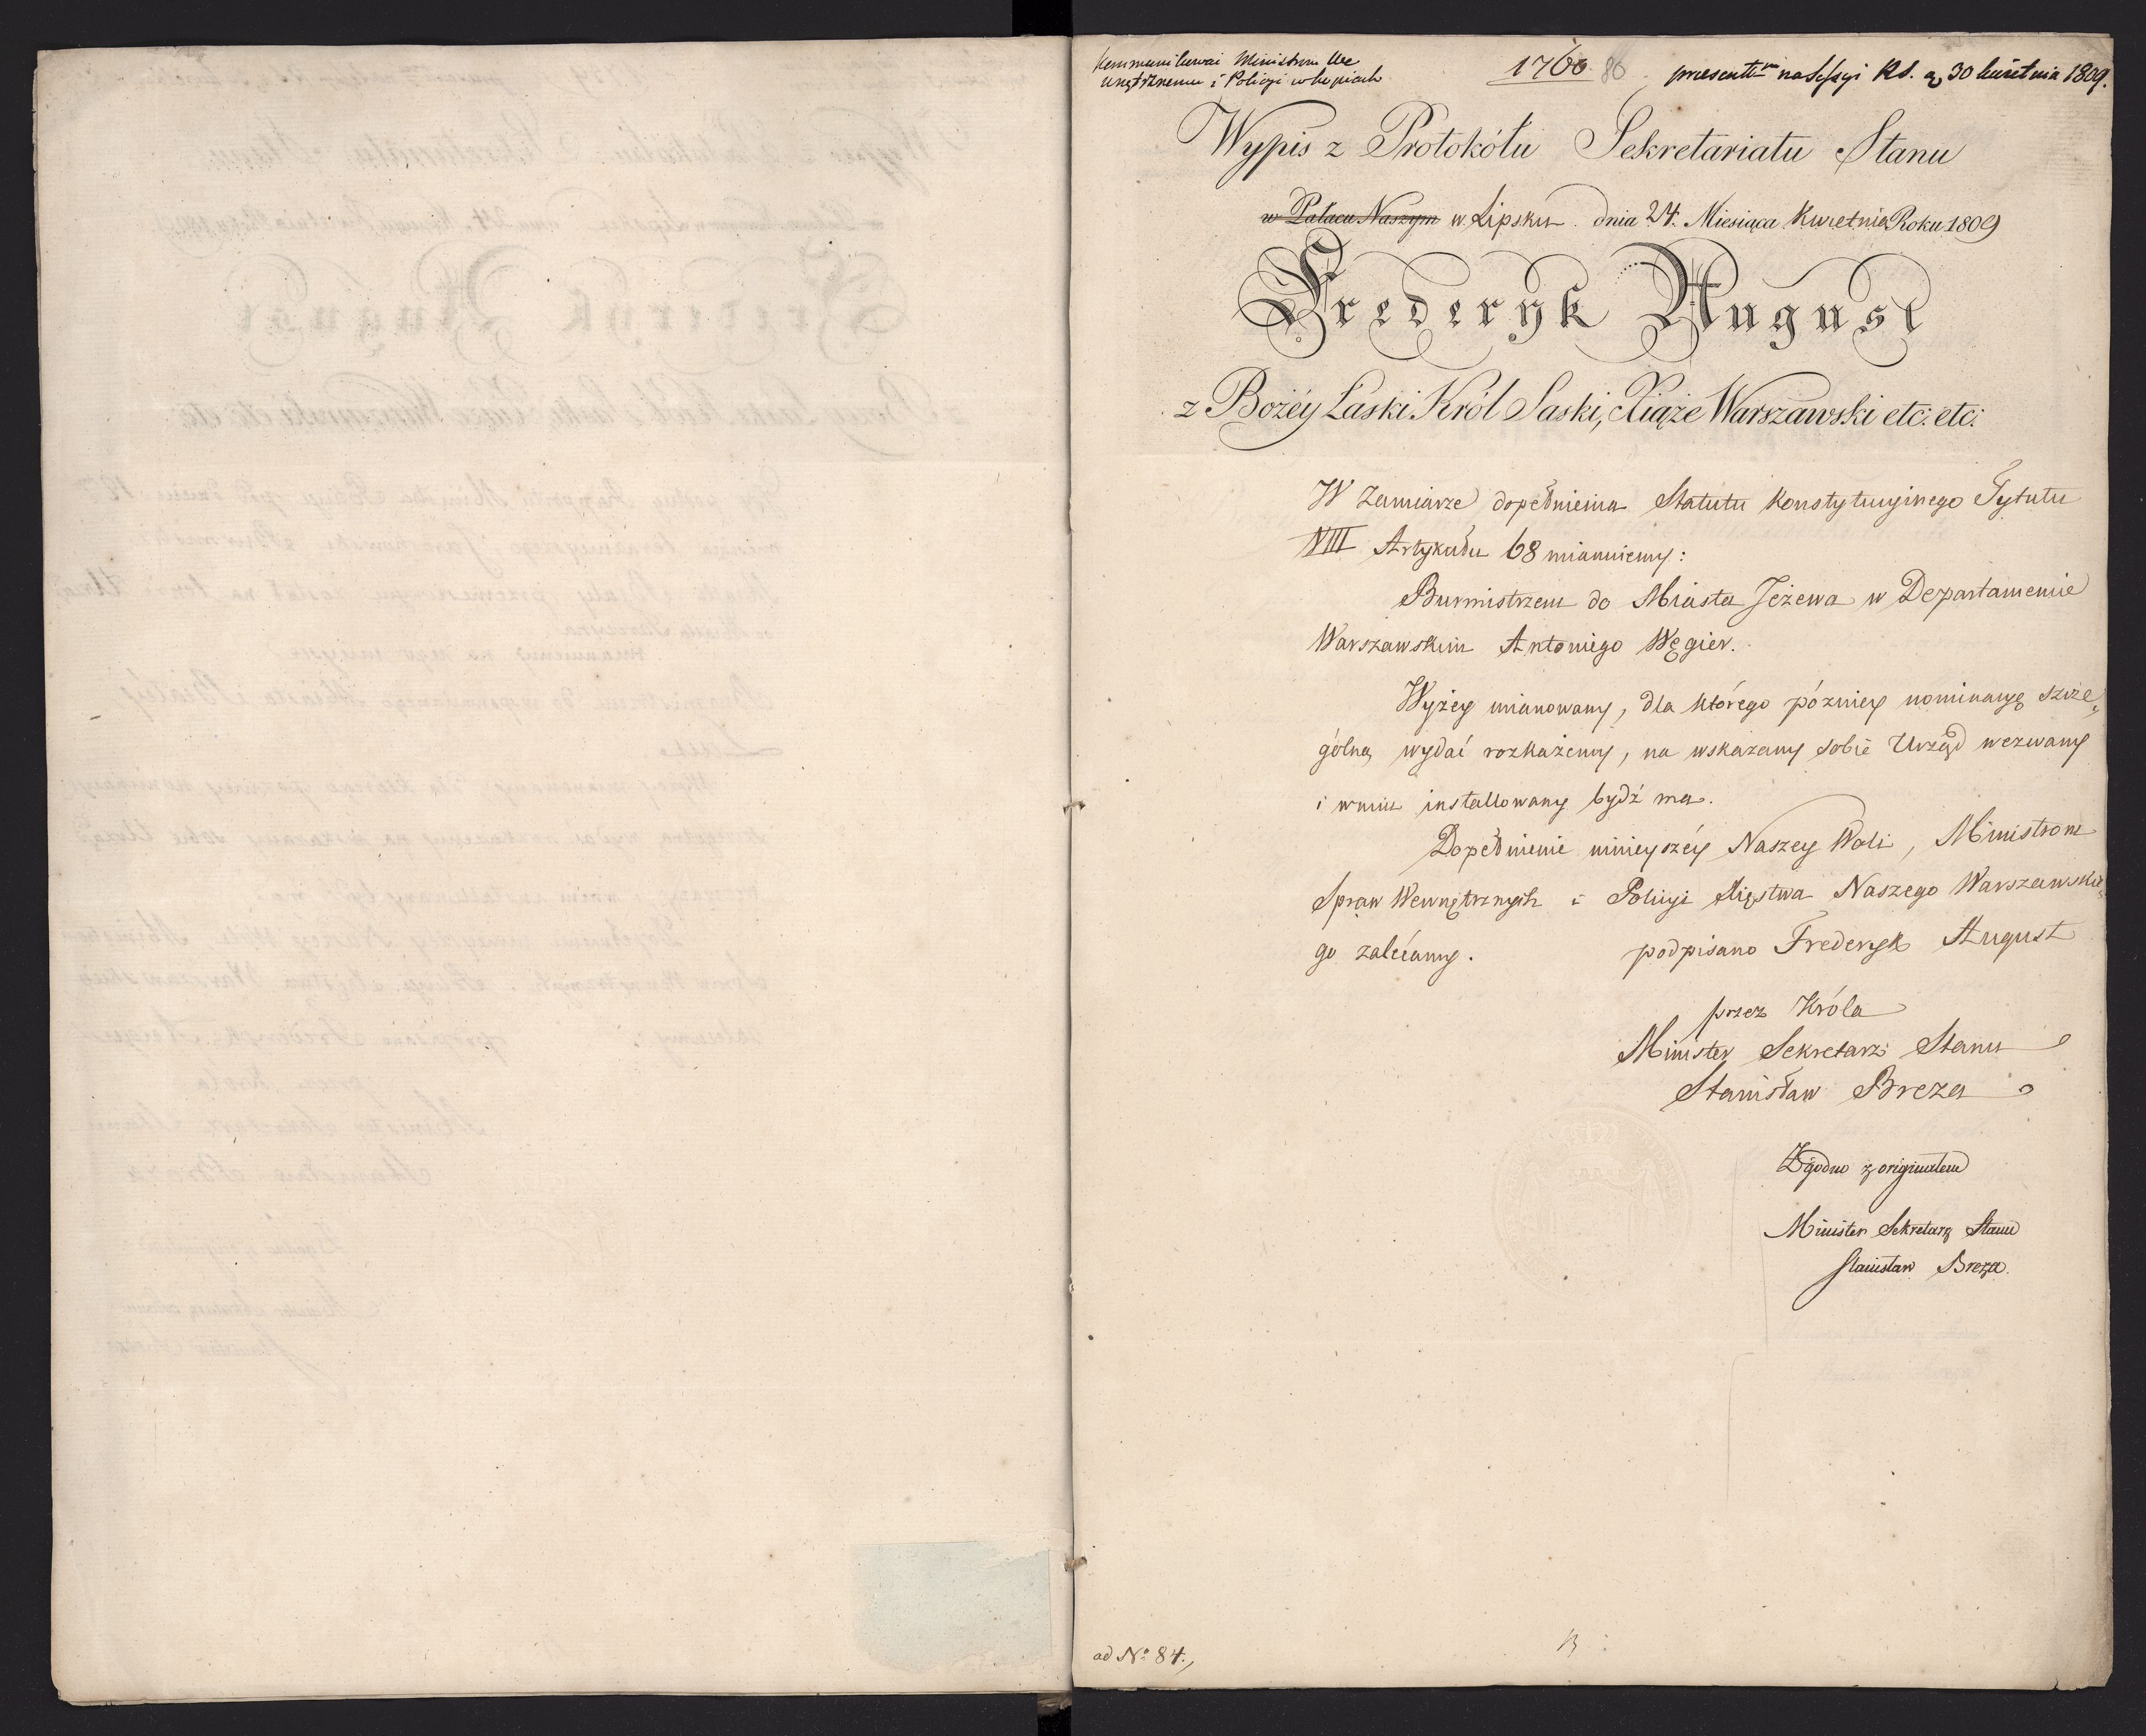 Kommunikować Ministrom We
wnętrznemu i Policyi w kopiach
1760 86 praesentm na Sessyi RS. d. 30 kwietnia 1809.
Wypis z Protokółu Sekretariatu Stanu
w Pałacu Naszym w Lipsku. dnia 24. Miesiąca Kwietnia Roku 1809
Frederyk August
z Bożéy Łaski Król Saski, Xiąże Warszawski etc: etc:
W Zamiarze dopełnienia Statutu Konstytucyinego Tytułu
VIII Artykułu 68 mianuiemy:
Burmistrzem do Miasta Jeżewa w Departamencie
Warszawskim Antoniego Węgier.
Wyżey mianowany, dla którego późniey nominacyę szcze,
gólną wydać rozkażemy, na wskazany sobie Urząd wezwany
i wnim installowany bydź ma.
Dopełnienie ninieyszéy Naszey Woli, Ministrom
Spraw Wewnętrznych i Policyi Xięstwa Naszego Warszawskie,
go zalécamy. podpisano Frederyk August
przez Króla
Minister Sekretarz Stanu
Stanisław Breza
Zgodno z originałem
Minister Sekretarz Stanu
Stanisław Breza.
ad No. 84.,